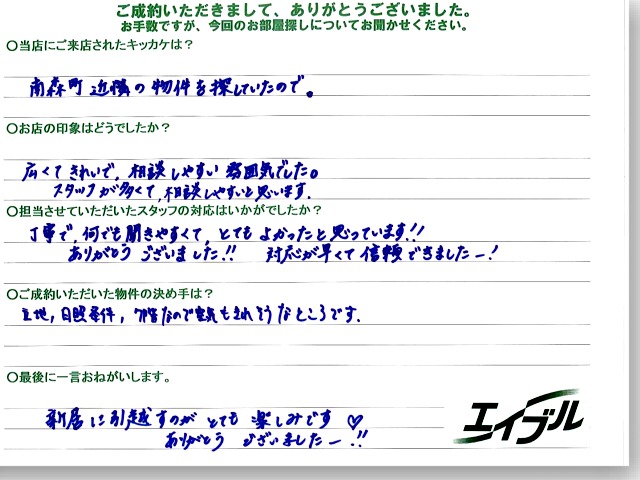 ご成約いただきまして、ありがとうございました。
お手数ですが、今回のお部屋探しについてお聞かせください。
〇当店にご来店されたキッカケは?
南森町近隣の物件を探していたので。
〇お店の印象はどうでしたか?
広くてきれいで、相談しやすい雰囲気でした。
スタッフが多くて、相談しやすいと思います。
〇担当させていただいたスタッフの対応はいかがでしたか?
丁寧で、何でも聞きやすくて、とてもよかったと思っています!!
ありがとうございました!! 対応が早くて信頼できましたー!
〇ご成約いただいた物件の決め手は?
立地,日照条件,7階なので空気もきれそうなところです.
〇最後に一言おねがいします。
新居に引越すのがとても楽しみです♡
ありがとうございましたー!!
エイブル